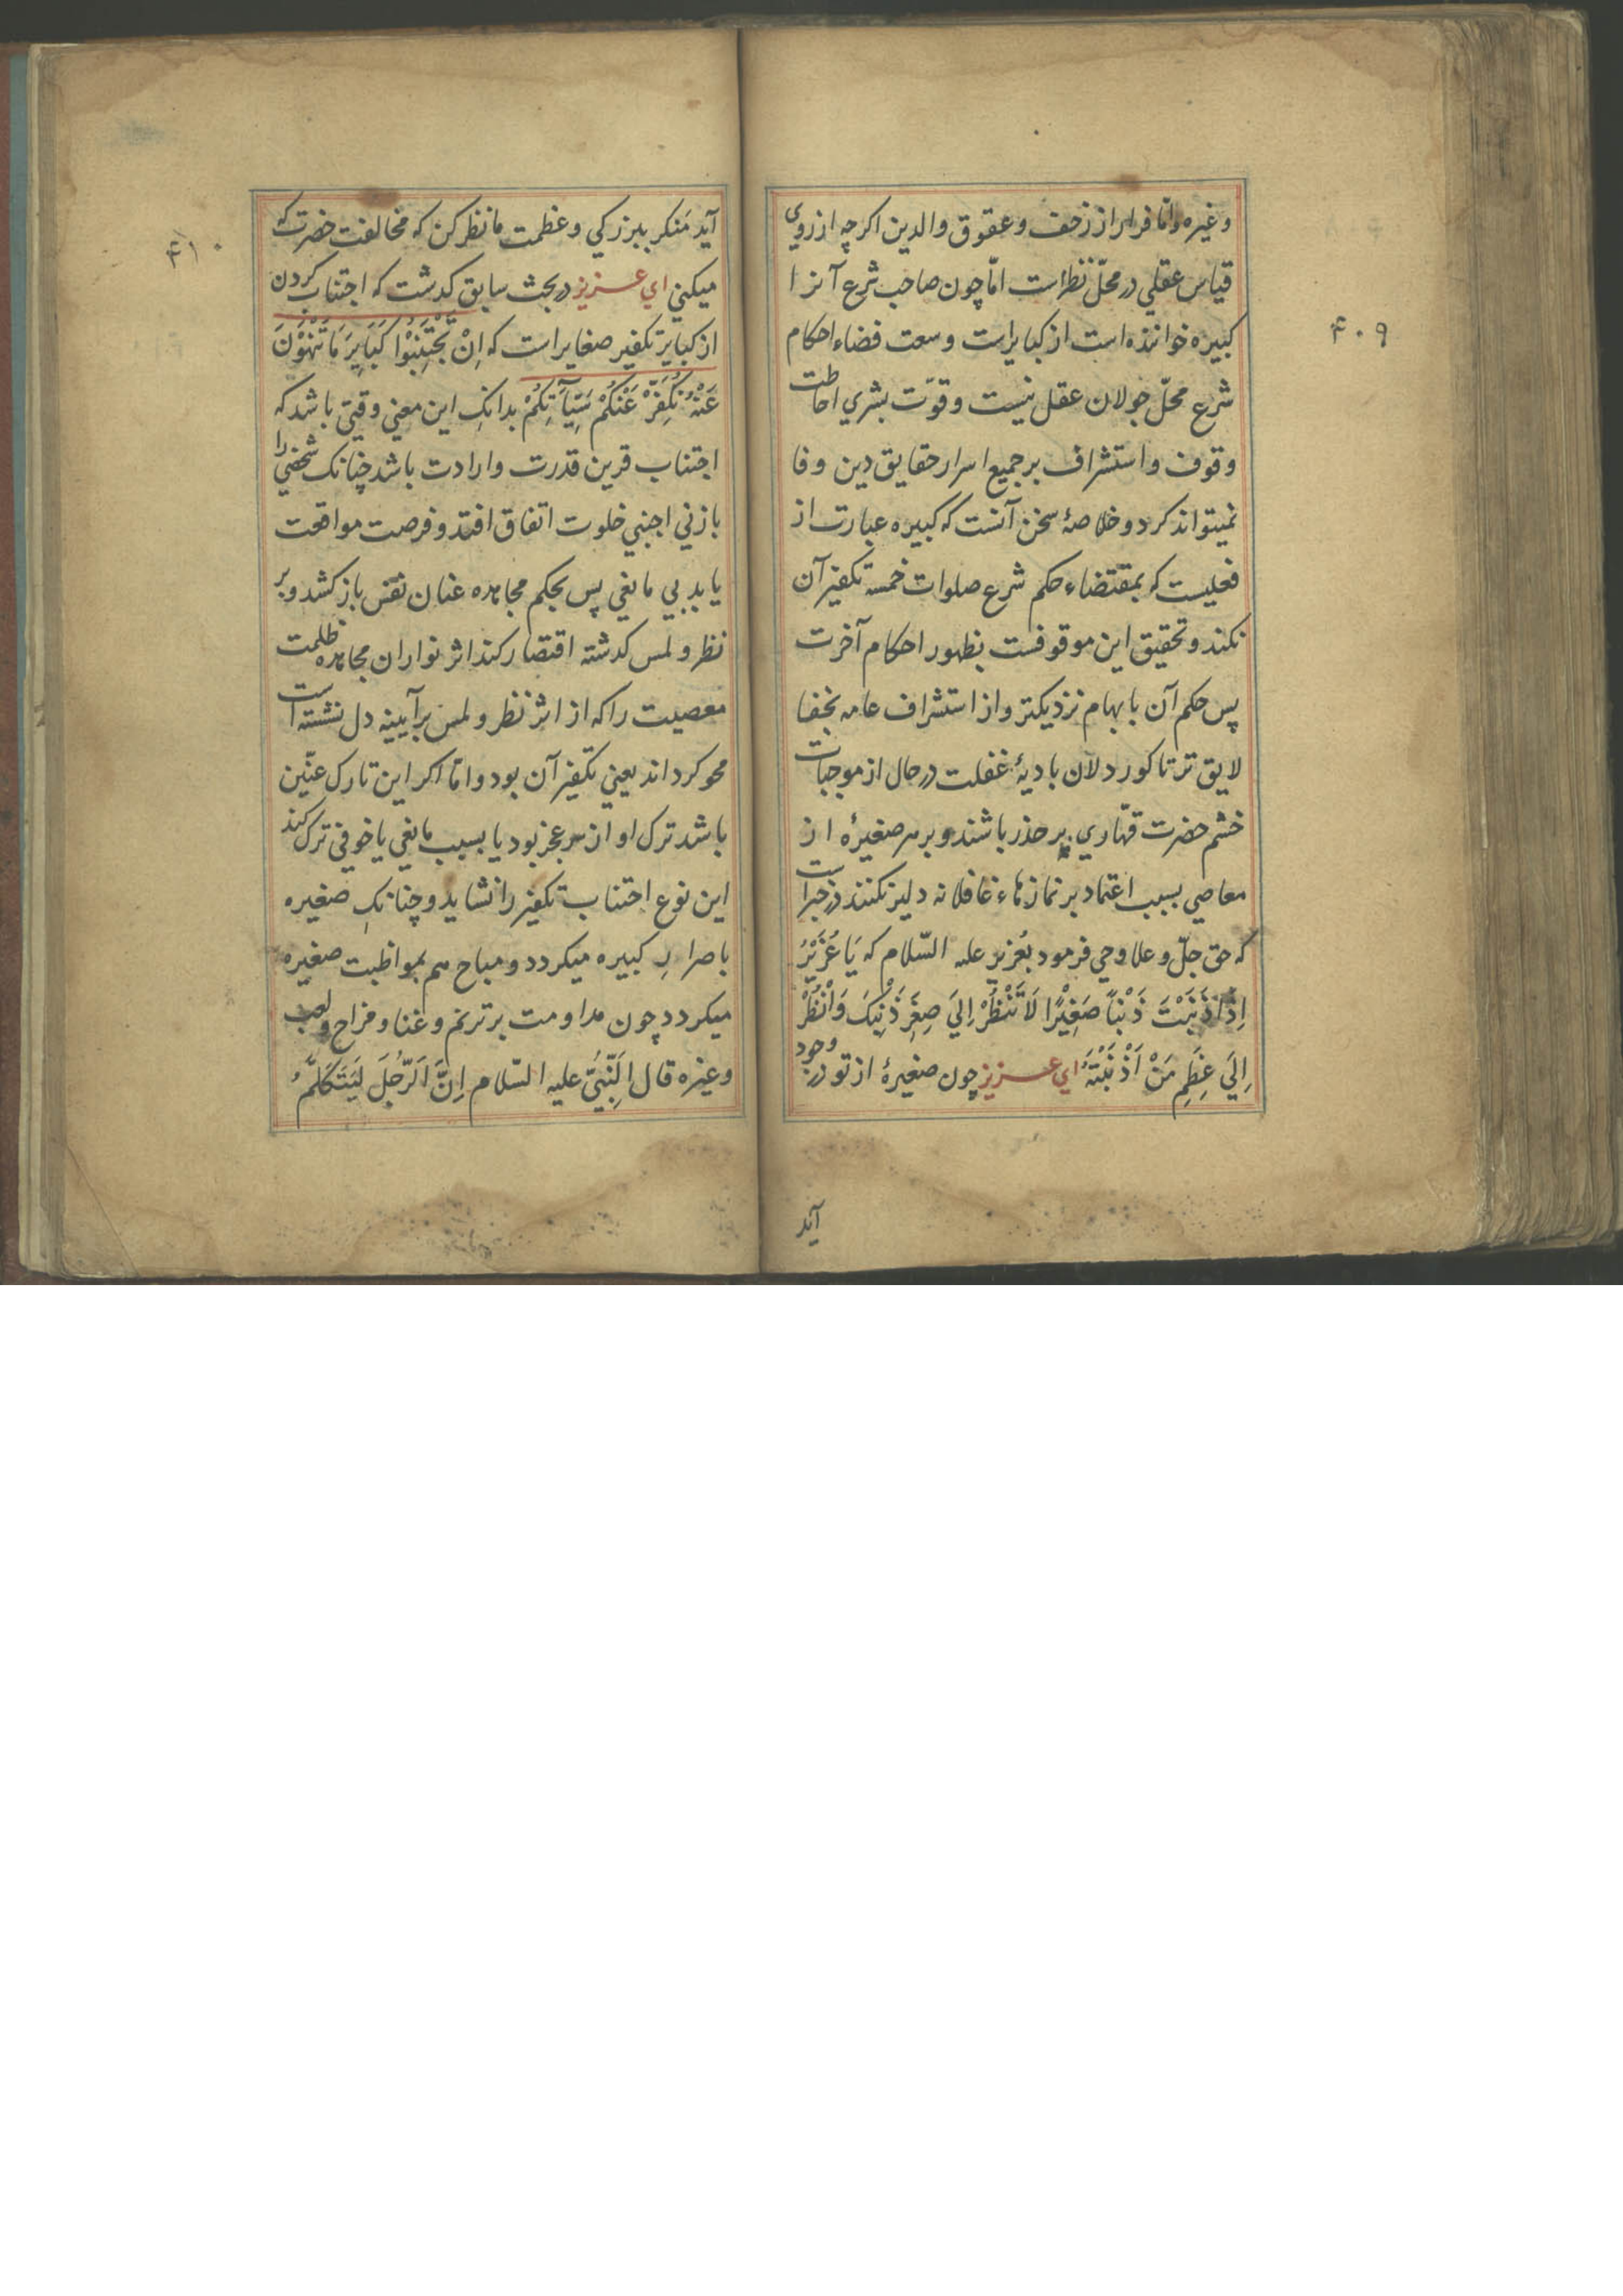 ۴۰۹
وغیره واما فرار از زحف وعقوق والدین اکرچه ازروی
قیاس عقلي در محلّ نظراست امّا چون صاحب شرع آنرا
کبیره خوانده است از کبایراست وسعت فضاء احکام
شرع محلّ جولان عقل نیست وقوّت بشري احاطت
وقوف واستشراف بر جمیع اسرار حقایق دین وفا
نمیتواند کرد وخلاصهٔ سخن آنست که کبیره عبارت از
فعلیست که بمقتضاء حکم شرع صلوات خمسه تکفیر آن
نکند وتحقیق این موقوفست بظهور احکام آخرت
پس حکم آن بابهام نزدیکتر واز استشراف عامه بخفا
لایق تر تا کوردلان بادیهٔ غفلت در حال از موجبات
خشم حضرت قهّاري بر حذر باشند وبر هر صغیرهٔ از
معاصي بسبب اعتماد بر نمازهاء غافلانه دلیر نکنند در خبراست
که حق جلّ وعلا وحي فرمود بعُزیر علیه السّلام که یَا عُزَیْرُ
اِذَا ذَنَبْتَ ذَنْبًا صَغِیْرًا لَا تَنْظُرْ اِلَي صِغَرِ ذَنْبِكَ وَانْظُرْ
اِلَي عِظَمِ مَنْ اَذْنَبْتَهُ اي عـزیز چون صغیرهٔ از تو در وجود
آید
۴۱۰
آید مَنکر ببزرکي وعظمت ما نظر کن که مخالفت حضرت که
میکني اي عـزیز در بحث سابق کدشت که اجتناب کردن
از کبایر تکفیر صغایراست که اِنْ تَجْتَنِبُوْا کَبَایِرَ مَا تُنْهَوْنَ
عَنْهُ نُکَفِّرْ عَنْکُمْ سَیِّآتِکُمْ بدانك این معني وقتي باشد که
اجتناب قرین قدرت وارادت باشد چنانك شخصي را
با زني اجنبي خلوت اتفاق افتد وفرصت مواقعت
یابد بي مانعي پس بحکم مجاهده عنان نفس باز کشد وبر
نظر ولمس کدشته اقتصار کند اثر نوار ان مجاهده ظلمت
معصیت را که از اثر نظر ولمس بر آیینه دل نشسته است
محو کرداند یعني تکفیر آن بود واما اکر این تارك عنّین
باشد ترك او از سر عجز بود یا بسبب مانعي یا خوفي ترك کند
این نوع اجتناب تکفیر را نشاید وچنانك صغیره
باصرار کبیره میکردد ومباح هم بمواظبت صغیره
میکردد چون مداومت بر ترنم وغنا ومزاح ولعب
وغیره قال اَلنَّبِيُّ علیه السّلام اِنَّ اَلرَّجُلَ لَیَتَکَلَّمُ